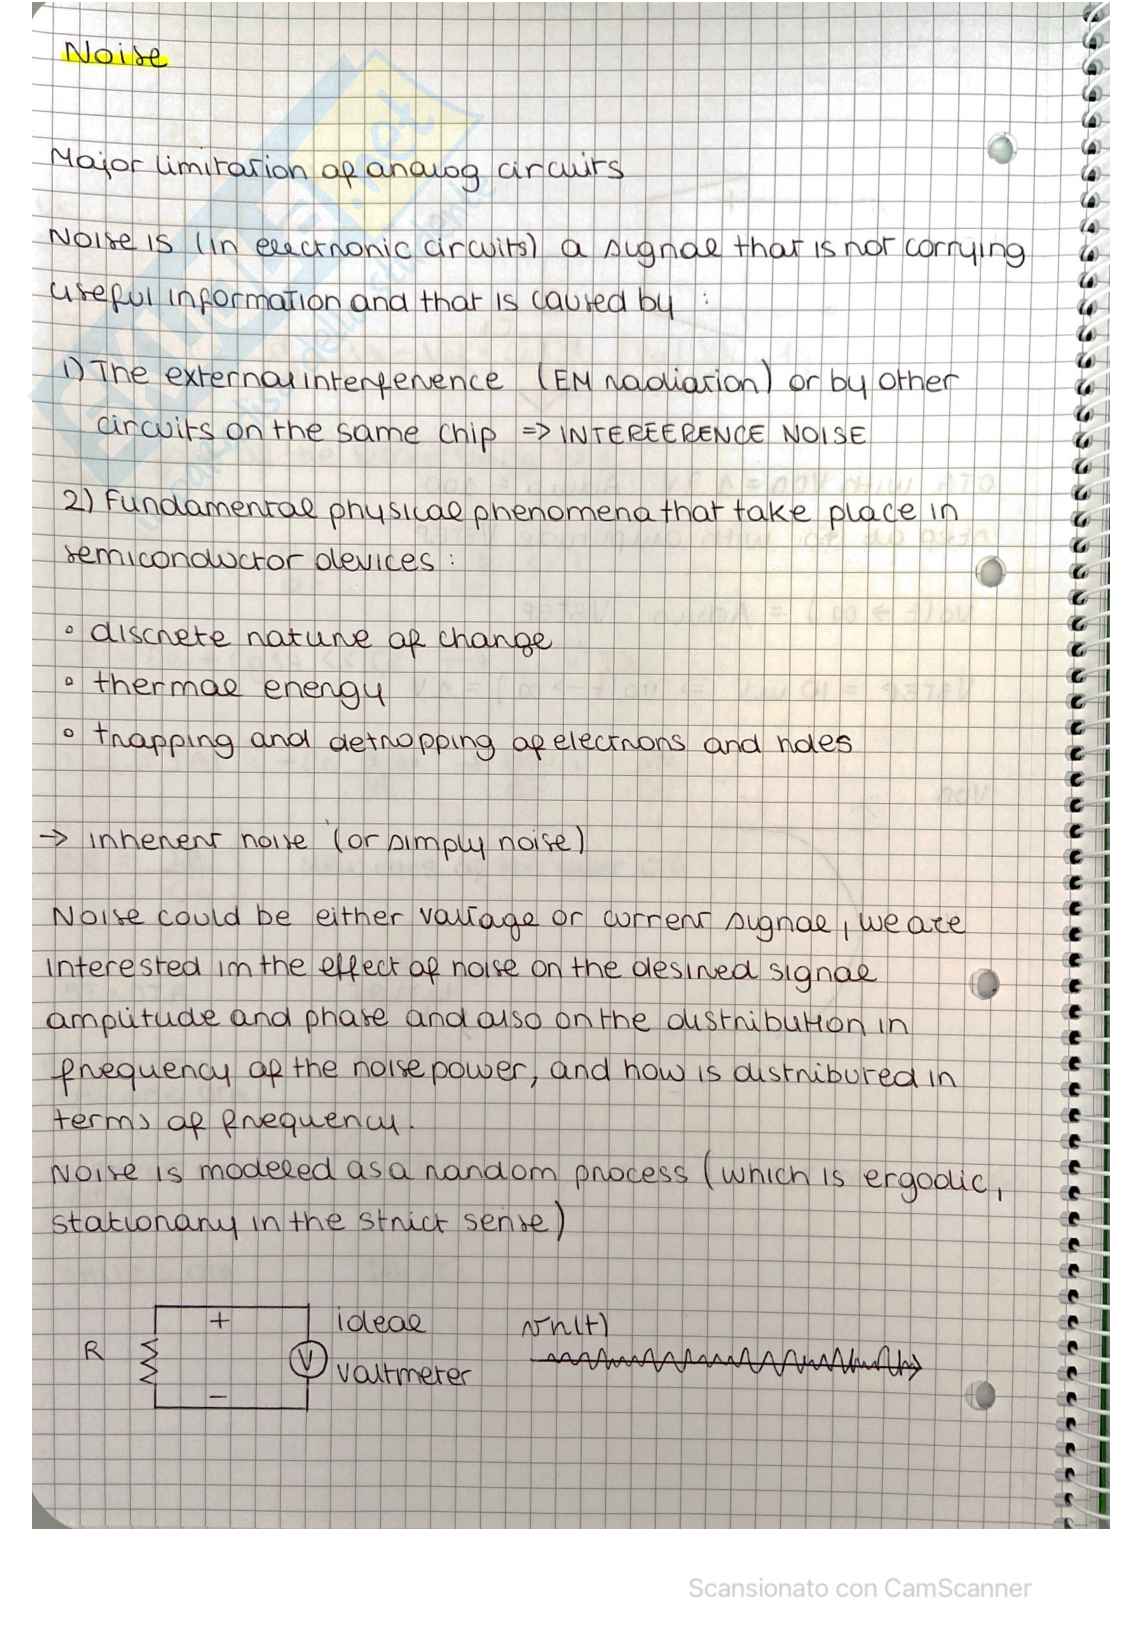 Noise
Major limitation of analog circuits
Noise is (in electronic circuits) a signal that is not carrying
useful information and that is caused by :
1) The external interference (EM radiation) or by other
circuits on the same chip => INTERFERENCE NOISE
2) Fundamental physical phenomena that take place in
semiconductor devices :
° discrete nature of charge
° thermal energy
° trapping and detrapping of electrons and holes
→ inherent noise (or simply noise)
Noise could be either voltage or current signal, we are
interested in the effect of noise on the desired signal
amplitude and phase and also on the distribution in
frequency of the noise power, and how is distributed in
terms of frequency.
Noise is modeled as a random process (which is ergodic,
stationary in the strict sense)
+ ideal vn(t)
R V voltmeter
−
Scansionato con CamScanner